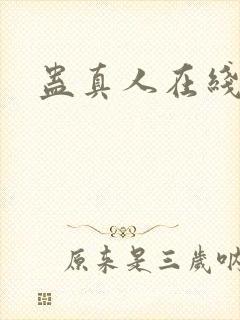 蛊真人在线
原来是三岁呐